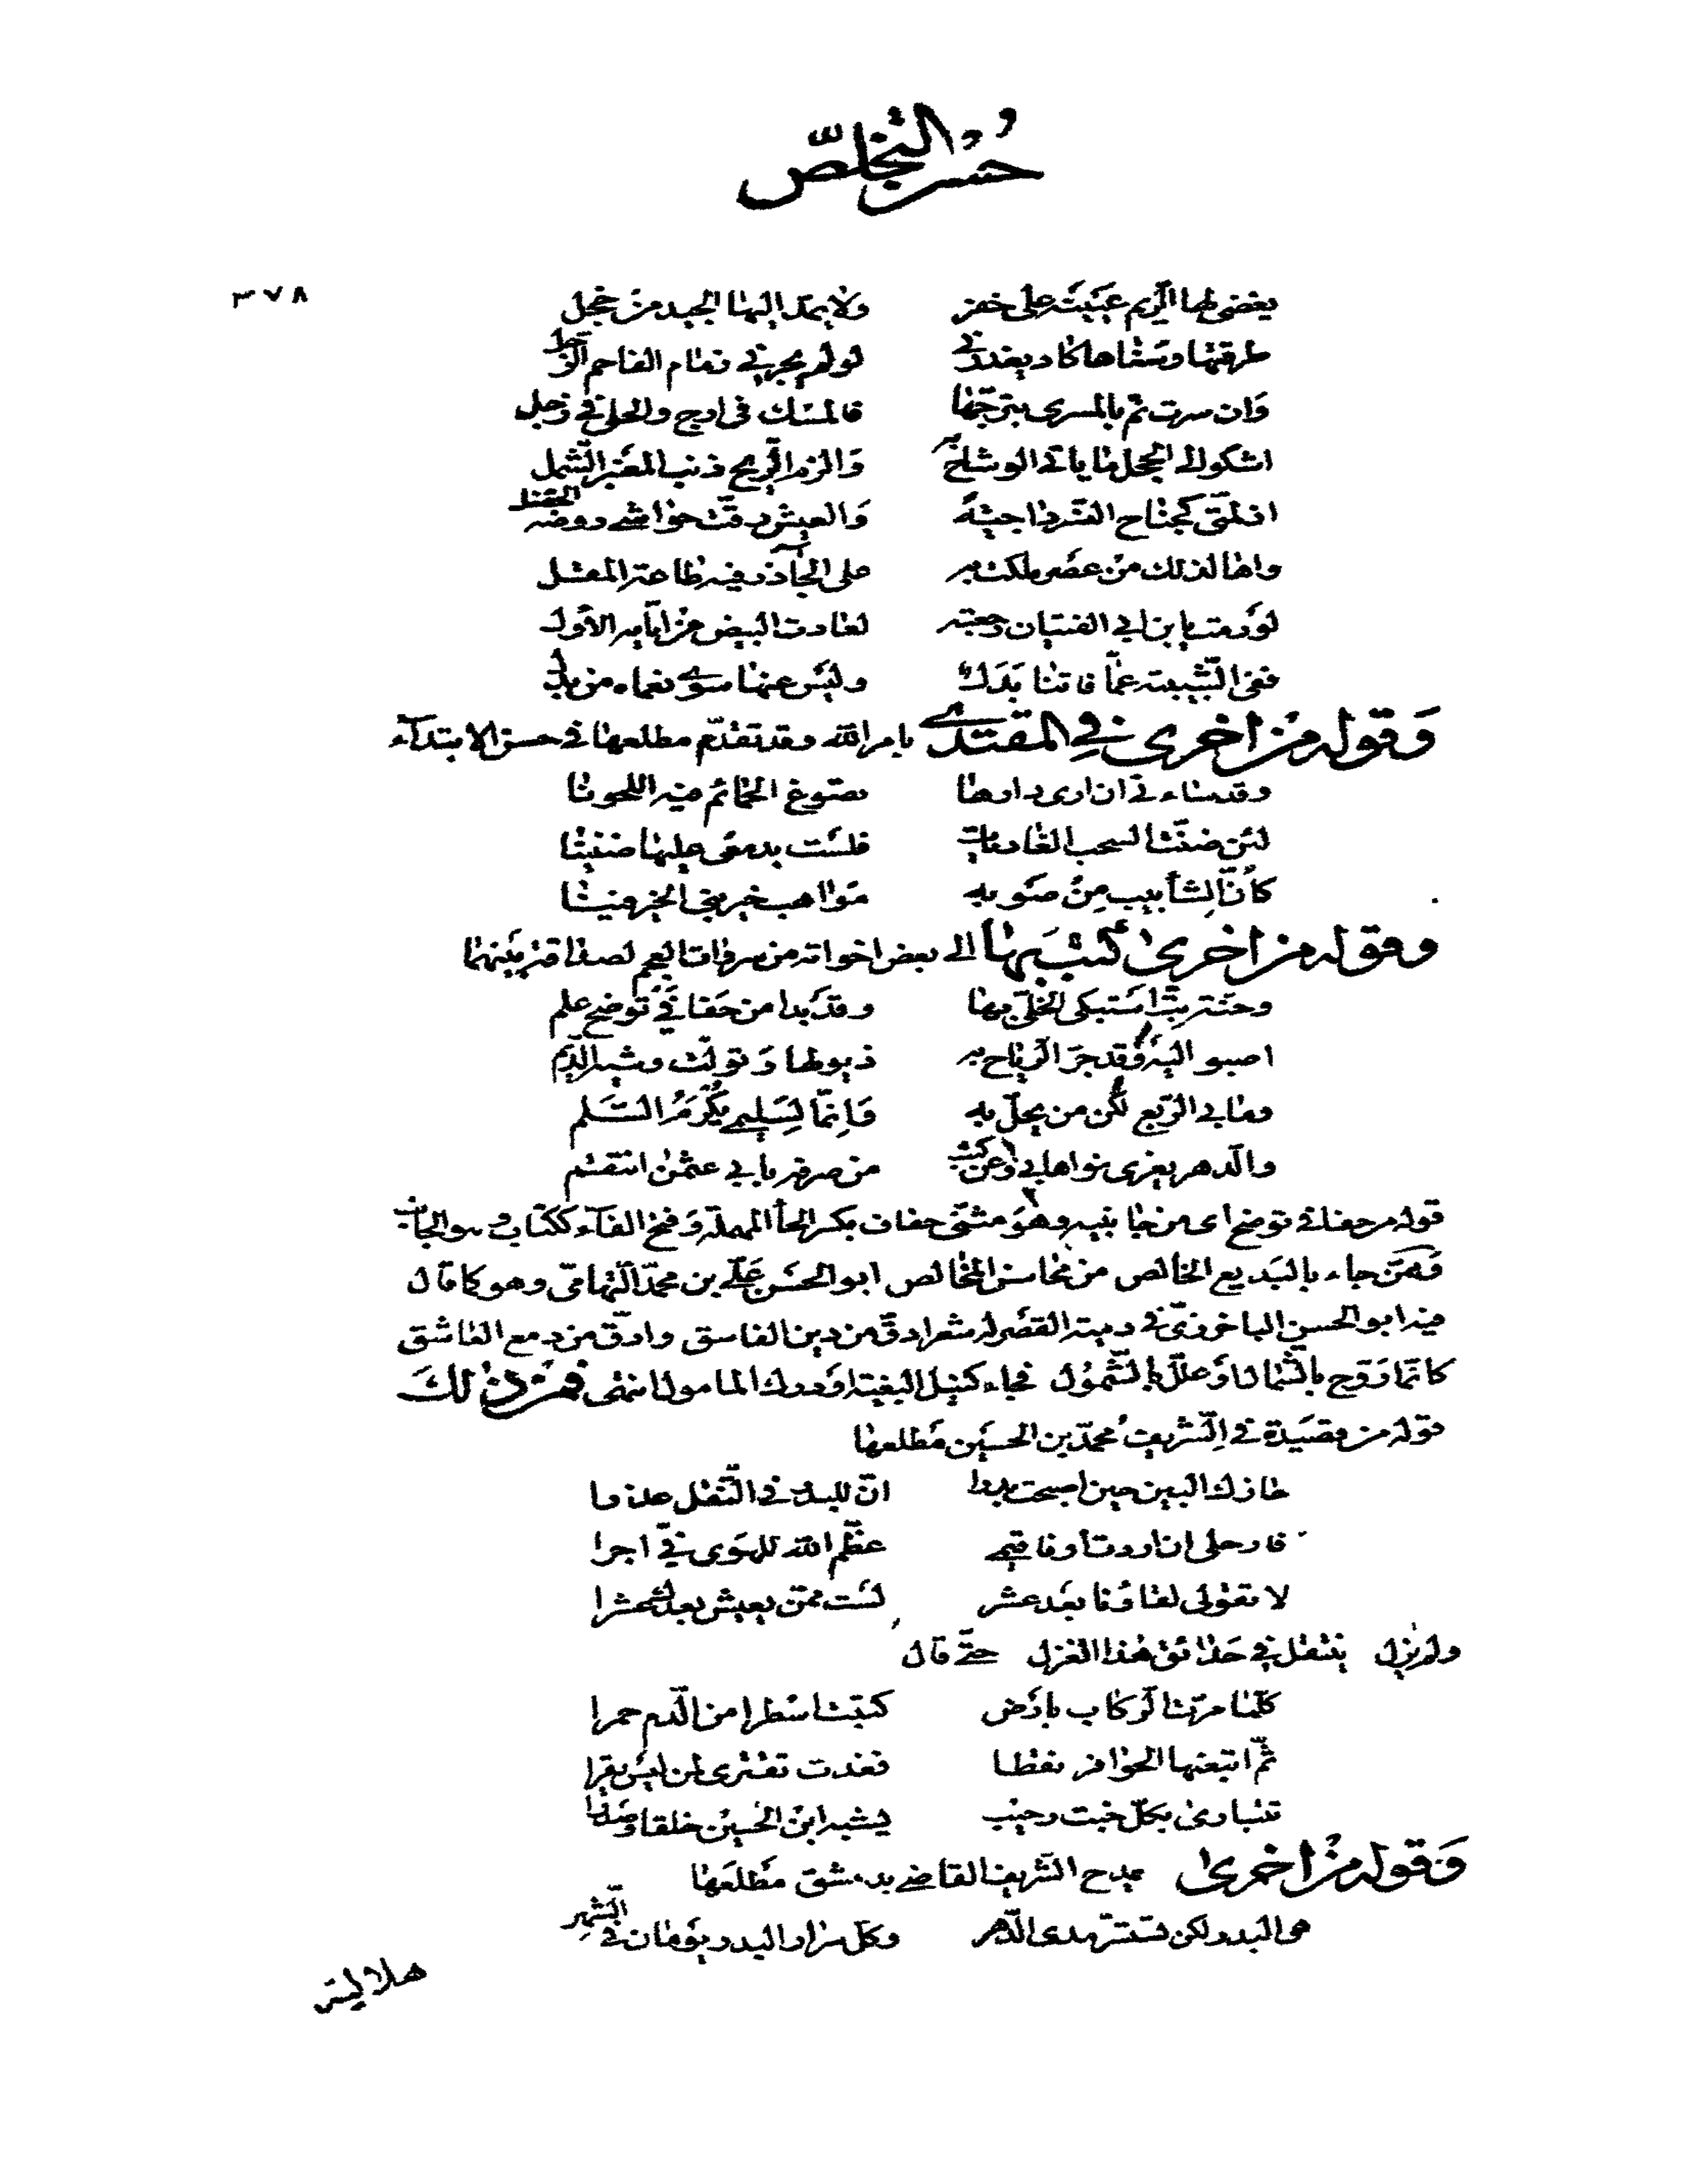 حُسْنُ التَّخَلُّصِ
٣٧٨
يغضى لها الرّيم عينيه على خفر ولا يمدّ اليها الجيد من خجل
طرقتها وسناها كاد يغدر بي لو لم يجرني ظلام الفاحم الرّجل
وَان سرت نمّ بالمسرى تبرّجها فالمسك فى ارج والحلى فى زجل
اشكو الى الحجل ما ياتى الوشاح به وَالزم الرّيح ذنب العنبر الشّمل
اذ لمّتى كجناح النّسر داجية وَالعيش رقّت حواشى روضه الخضل
واها لذلك من عصر ملكت به على الجآذر فيه طاعة المقل
لورمت يا بن ابى الفتيان رجعته لعادت البيض من ايّامه الأول
ففى الشّبيبة عمّا فاتنا بدل وليس عنها سوى نعماه من بدل
وَقوله من اخرى في المقتدى بامر الله وقد تقدّم مطلعها فى حسن الابتدآء
وقد ساءنى ان ارى دارها تصوّغ الحمائم فيه اللحونا
لئن ضنّت السحب الغاديات فلست بدمعى عليها ضنينا
كأنّ الشآبيب مِن صَوبه مَواهب خير بنى الخير فينا
وقوله من اخرى كتب بها الى بعض اخوانه من سروات العجم لصداقة بينهما
وحنّة بتّ استبكى الخلىّ بها وقد بدا من حفافَى تُوضح علم
اصبو اليه وَقد جرّ الرّياح به ذيولها وَتولّت وشيه الدّيم
وما بى الرّبع لكن من يحلّ به وَاِنّما لِسُليمى يُكرَمُ السَّلم
والدهر يغرى نواها بى وعن كثب من صرفه بابى عثمن انتقم
قوله من حفافى توضح اى من جانبيه وهو مثنّى حفاف بكسر الحأ المهملة وَفتح الفآء ككتاب وهو الجانب
وَممّن جاء بالبَديع الخالص من محاسن المخالص ابو الحسَن عَلّى بن محمّد التّهامىّ وهو كما قال
فيه ابو الحسن الباخرزىّ فى دمية القصر له شعر ادقّ من دين الفاسق وادقّ من دمع العاشق
كانّما رَوّح بالشّمال اوَ علّل بالشّمُول فجاء كنيل البغية اوَ درك المامول انتهى فمن ذلكَ
قوله من قصَيدة فى الشّريف محمّد بن الحسَين مَطلعها
خازلك البين حين اصبحت بدرا انّ للبدر فى التّنقّل عذرا
فارحلى ان اردت أو فاقيمى عظّم الله للهوى فىّ اجرا
لا تقولى لقاؤنا بعَد عشر لست ممّن يعيش بعدك عشرا
ولم يزل ينتقل فى حَدائق هذا الغزل حتّى قال
كلّما مرّت الرّكاب بارَض كتبت اسطرا من الدّم حمرا
ثمّ اتبعتها الحوافر نقطا فغدت تقترى لمن ليس يقرا
تتبارى بكلّ خبت رحيب يشبه ابن الحسين خلقا وصدرا
وَقوله من اخرى يمدح الشّريف القاضى بدمشق مَطلعَها
هى البدر ولكن تستسرّ مدى الدّهر وكلّ سرار البدر يومان فى الشّهر
هلاليّة